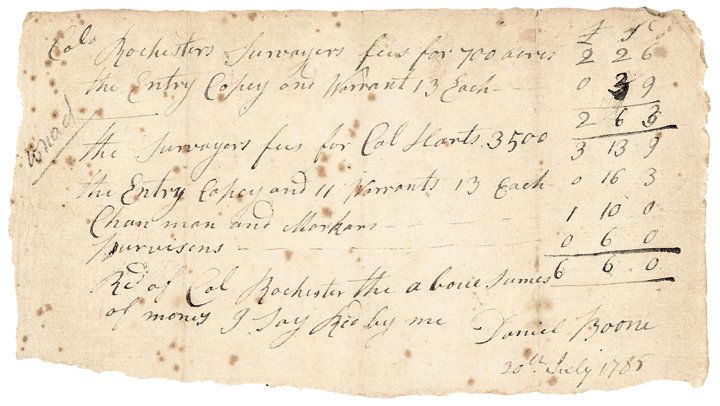 £ S D
Colo Rochesters Survayers fees for 700 acres 2 2 6
the Entry Copey and Warrant 13 Each 0 3 9
2 6 3
the Survayers fees for Col Harts 3500 3 13 9
the Entry Copey and 11 Warrants 13 Each 0 16 3
Chan man and Markars 1 10 0
purvisens 0 6 0
Recd of Col Rochester the above sumes 6 6 0
of money I Say Recd by me
Daniel Boone
20th July 178